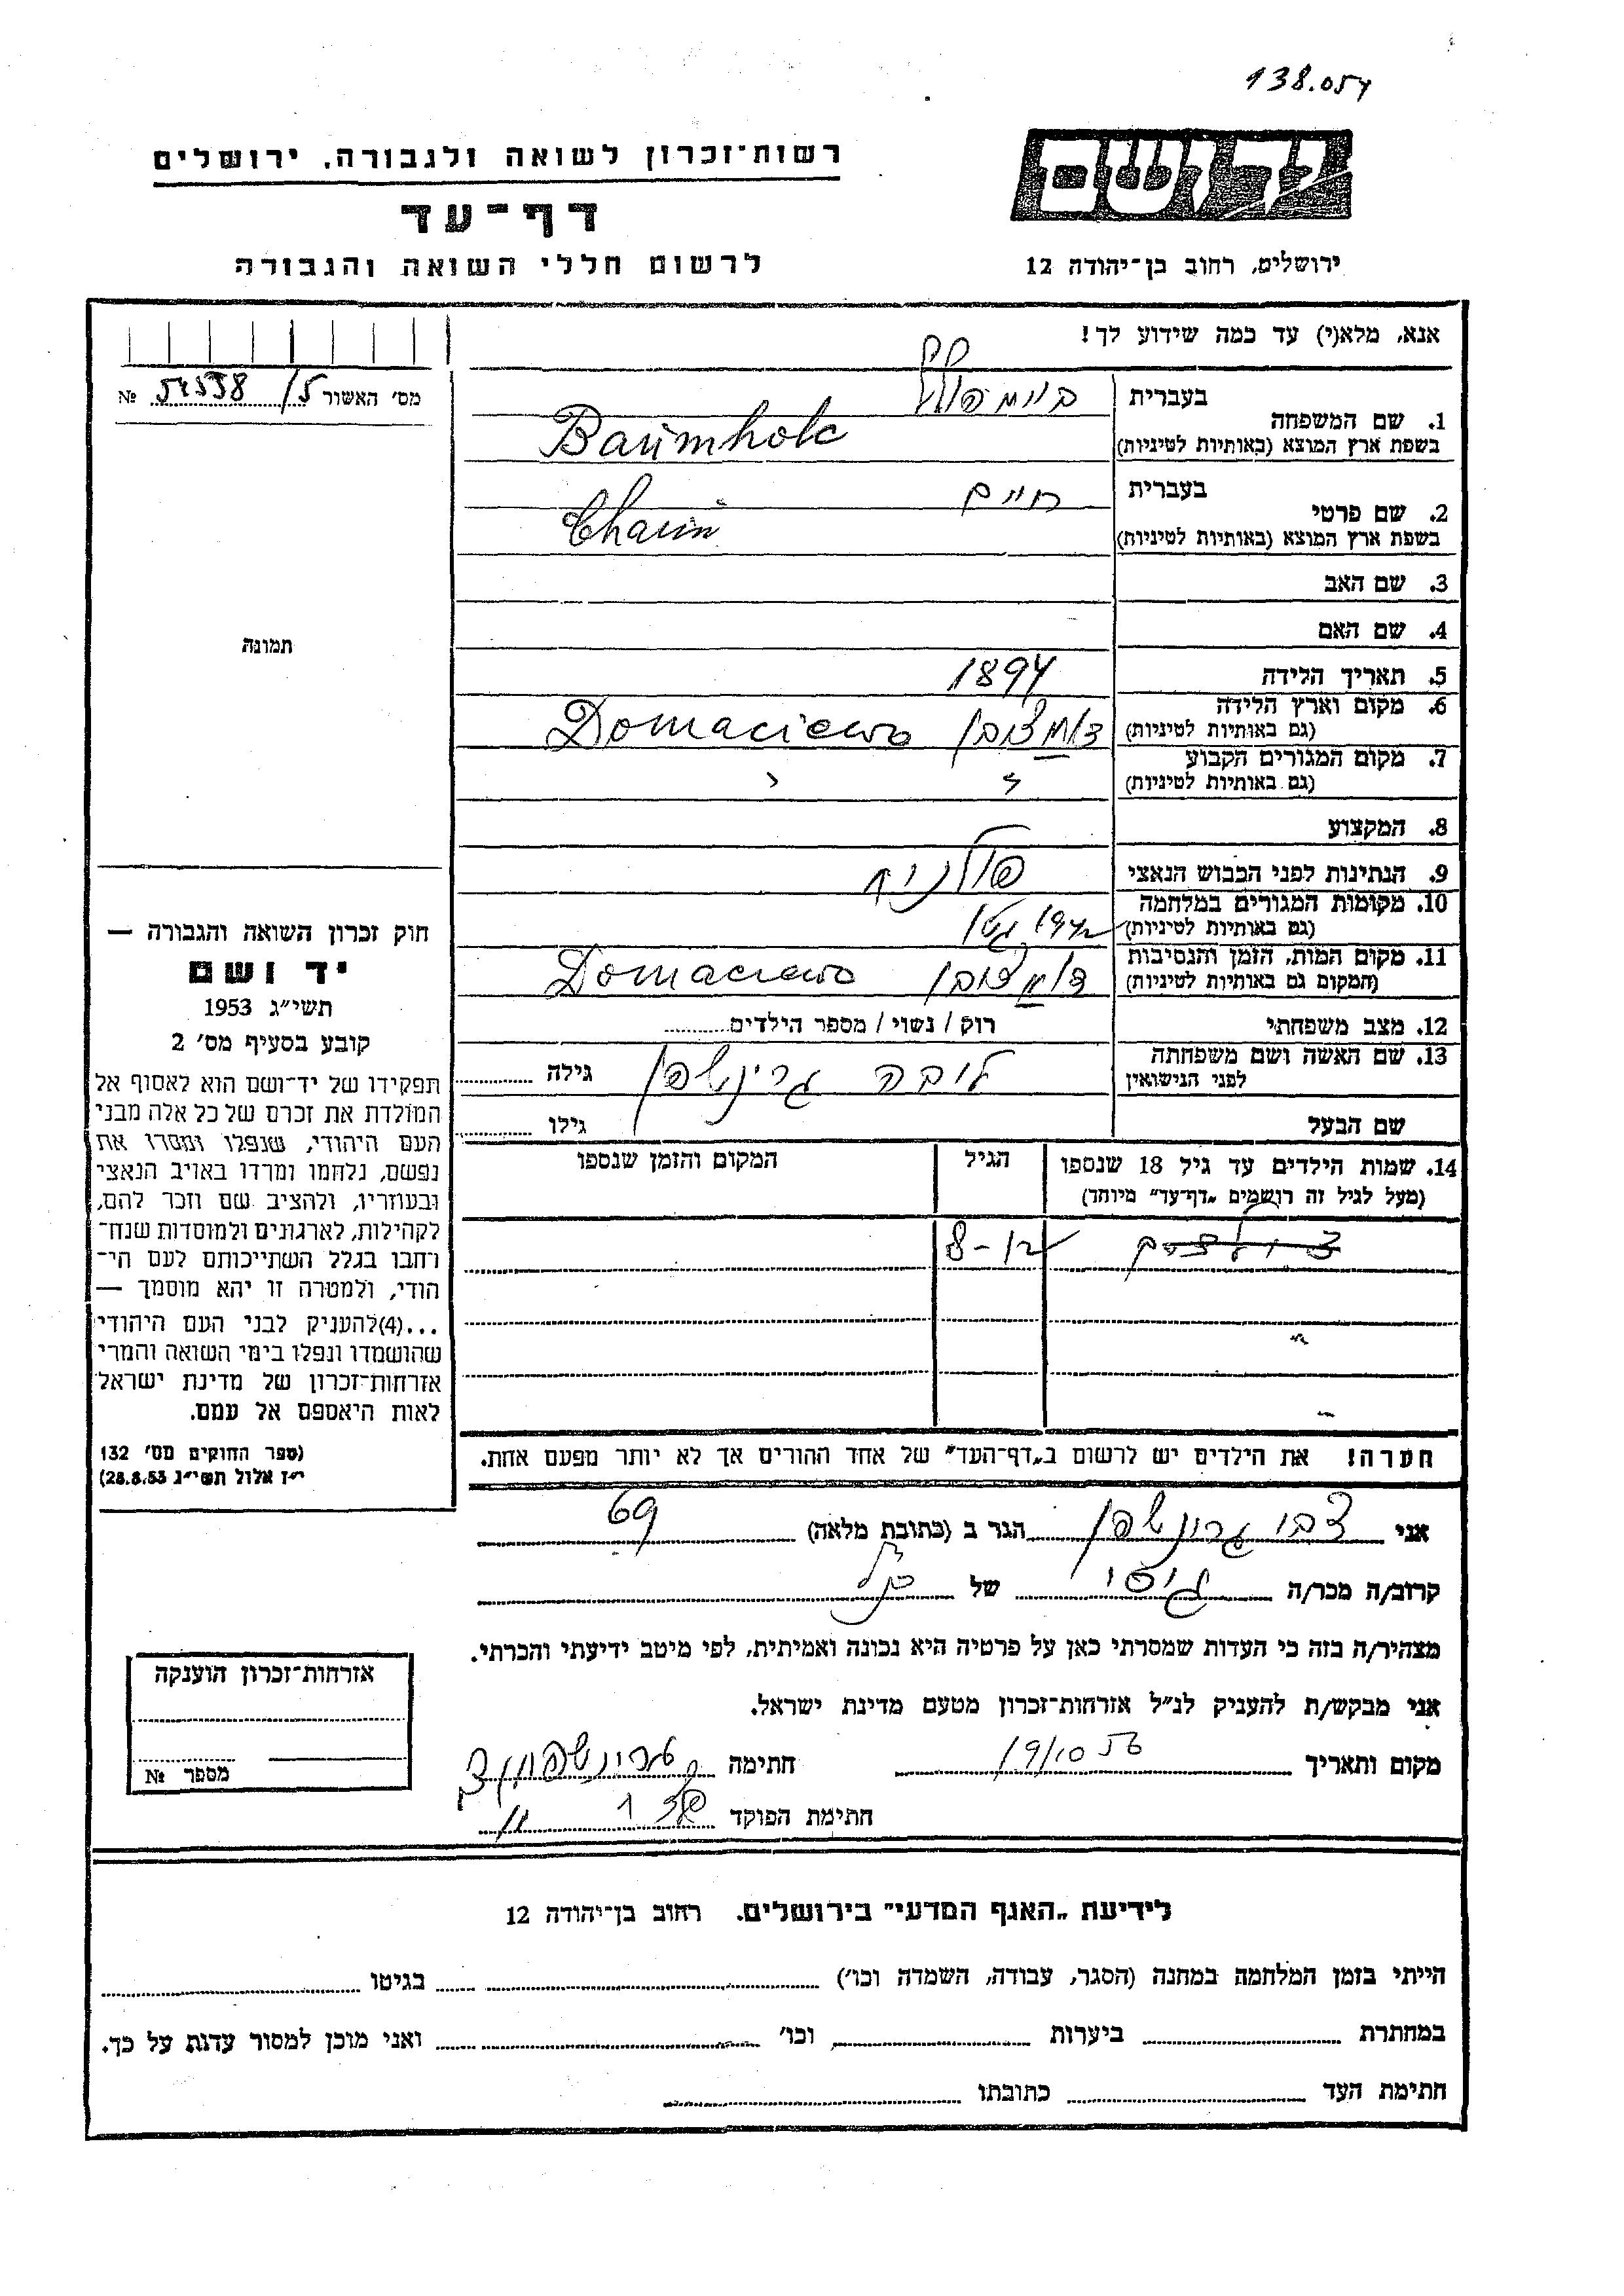 138.054
יד ושם
ירושלים, רחוב בן־יהודה 12
רשות־זכרון לשואה ולגבורה, ירושלים
דף־עד
לרשום חללי השואה והגבורה
אנא, מלא(י) עד כמה שידוע לך!
מס׳ האשור №
1. שם המשפחה
בעברית
בשפת ארץ המוצא (באותיות לטיניות) Baumholc
2. שם פרטי
בעברית חיים
בשפת ארץ המוצא (באותיות לטיניות) Chaim
3. שם האב
4. שם האם
5. תאריך הלידה 1894
6. מקום וארץ הלידה
(גם באותיות לטיניות) Domaciewo
7. מקום המגורים הקבוע
(גם באותיות לטיניות)
8. המקצוע
9. הנתינות לפני הכבוש הנאצי פולנית
10. מקומות המגורים במלחמה
(גם באותיות לטיניות)
11. מקום המות, הזמן והנסיבות
(המקום גם באותיות לטיניות) Domaciewo
12. מצב משפחתי רוק / נשוי / מספר הילדים
13. שם האשה ושם משפחתה
לפני הנישואין ליבה גרינשפן גילה
שם הבעל גילו
14. שמות הילדים עד גיל 18 שנספו הגיל המקום והזמן שנספו
(מעל לגיל זה רושמים „דף־עד” מיוחד)
הערה! את הילדים יש לרשום ב„דף־העד” של אחד ההורים אך לא יותר מפעם אחת.
תמונה
חוק זכרון השואה והגבורה —
יד ושם
תשי״ג 1953
קובע בסעיף מס׳ 2
תפקידו של יד־ושם הוא לאסוף אל
המולדת את זכרם של כל אלה מבני
העם היהודי, שנפלו ומסרו את
נפשם, נלחמו ומרדו באויב הנאצי
ובעוזריו, ולהציב שם וזכר להם,
לקהילות, לארגונים ולמוסדות שנח־
רחבו בגלל השתייכותם לעם הי־
הודי, ולמטרה זו יהא מוסמך —
...(4)להעניק לבני העם היהודי
שהושמדו ונפלו בימי השואה והמרי
אזרחות־זכרון של מדינת ישראל
לאות היאספם אל עמם.
(ספר החוקים מס׳ 132
י״ז אלול תשי״ג 28.8.53)
אני צבי גרינשפן הגר ב (כתובת מלאה) 69
קרוב/ה מכר/ה גיסי של
מצהיר/ה בזה כי העדות שמסרתי כאן על פרטיה היא נכונה ואמיתית, לפי מיטב ידיעתי והכרתי.
אני מבקש/ת להעניק לנ״ל אזרחות־זכרון מטעם מדינת ישראל.
מקום ותאריך 19/10 56 חתימה
חתימת הפוקד
אזרחות־זכרון הוענקה
מספר №
לידיעת „האגף המדעי” בירושלים. רחוב בן־יהודה 12
הייתי בזמן המלחמה במחנה (הסגר, עבודה, השמדה וכו׳) בגיטו
במחתרת ביערות וכו׳ ואני מוכן למסור עדות על כך.
חתימת העד כתובתו